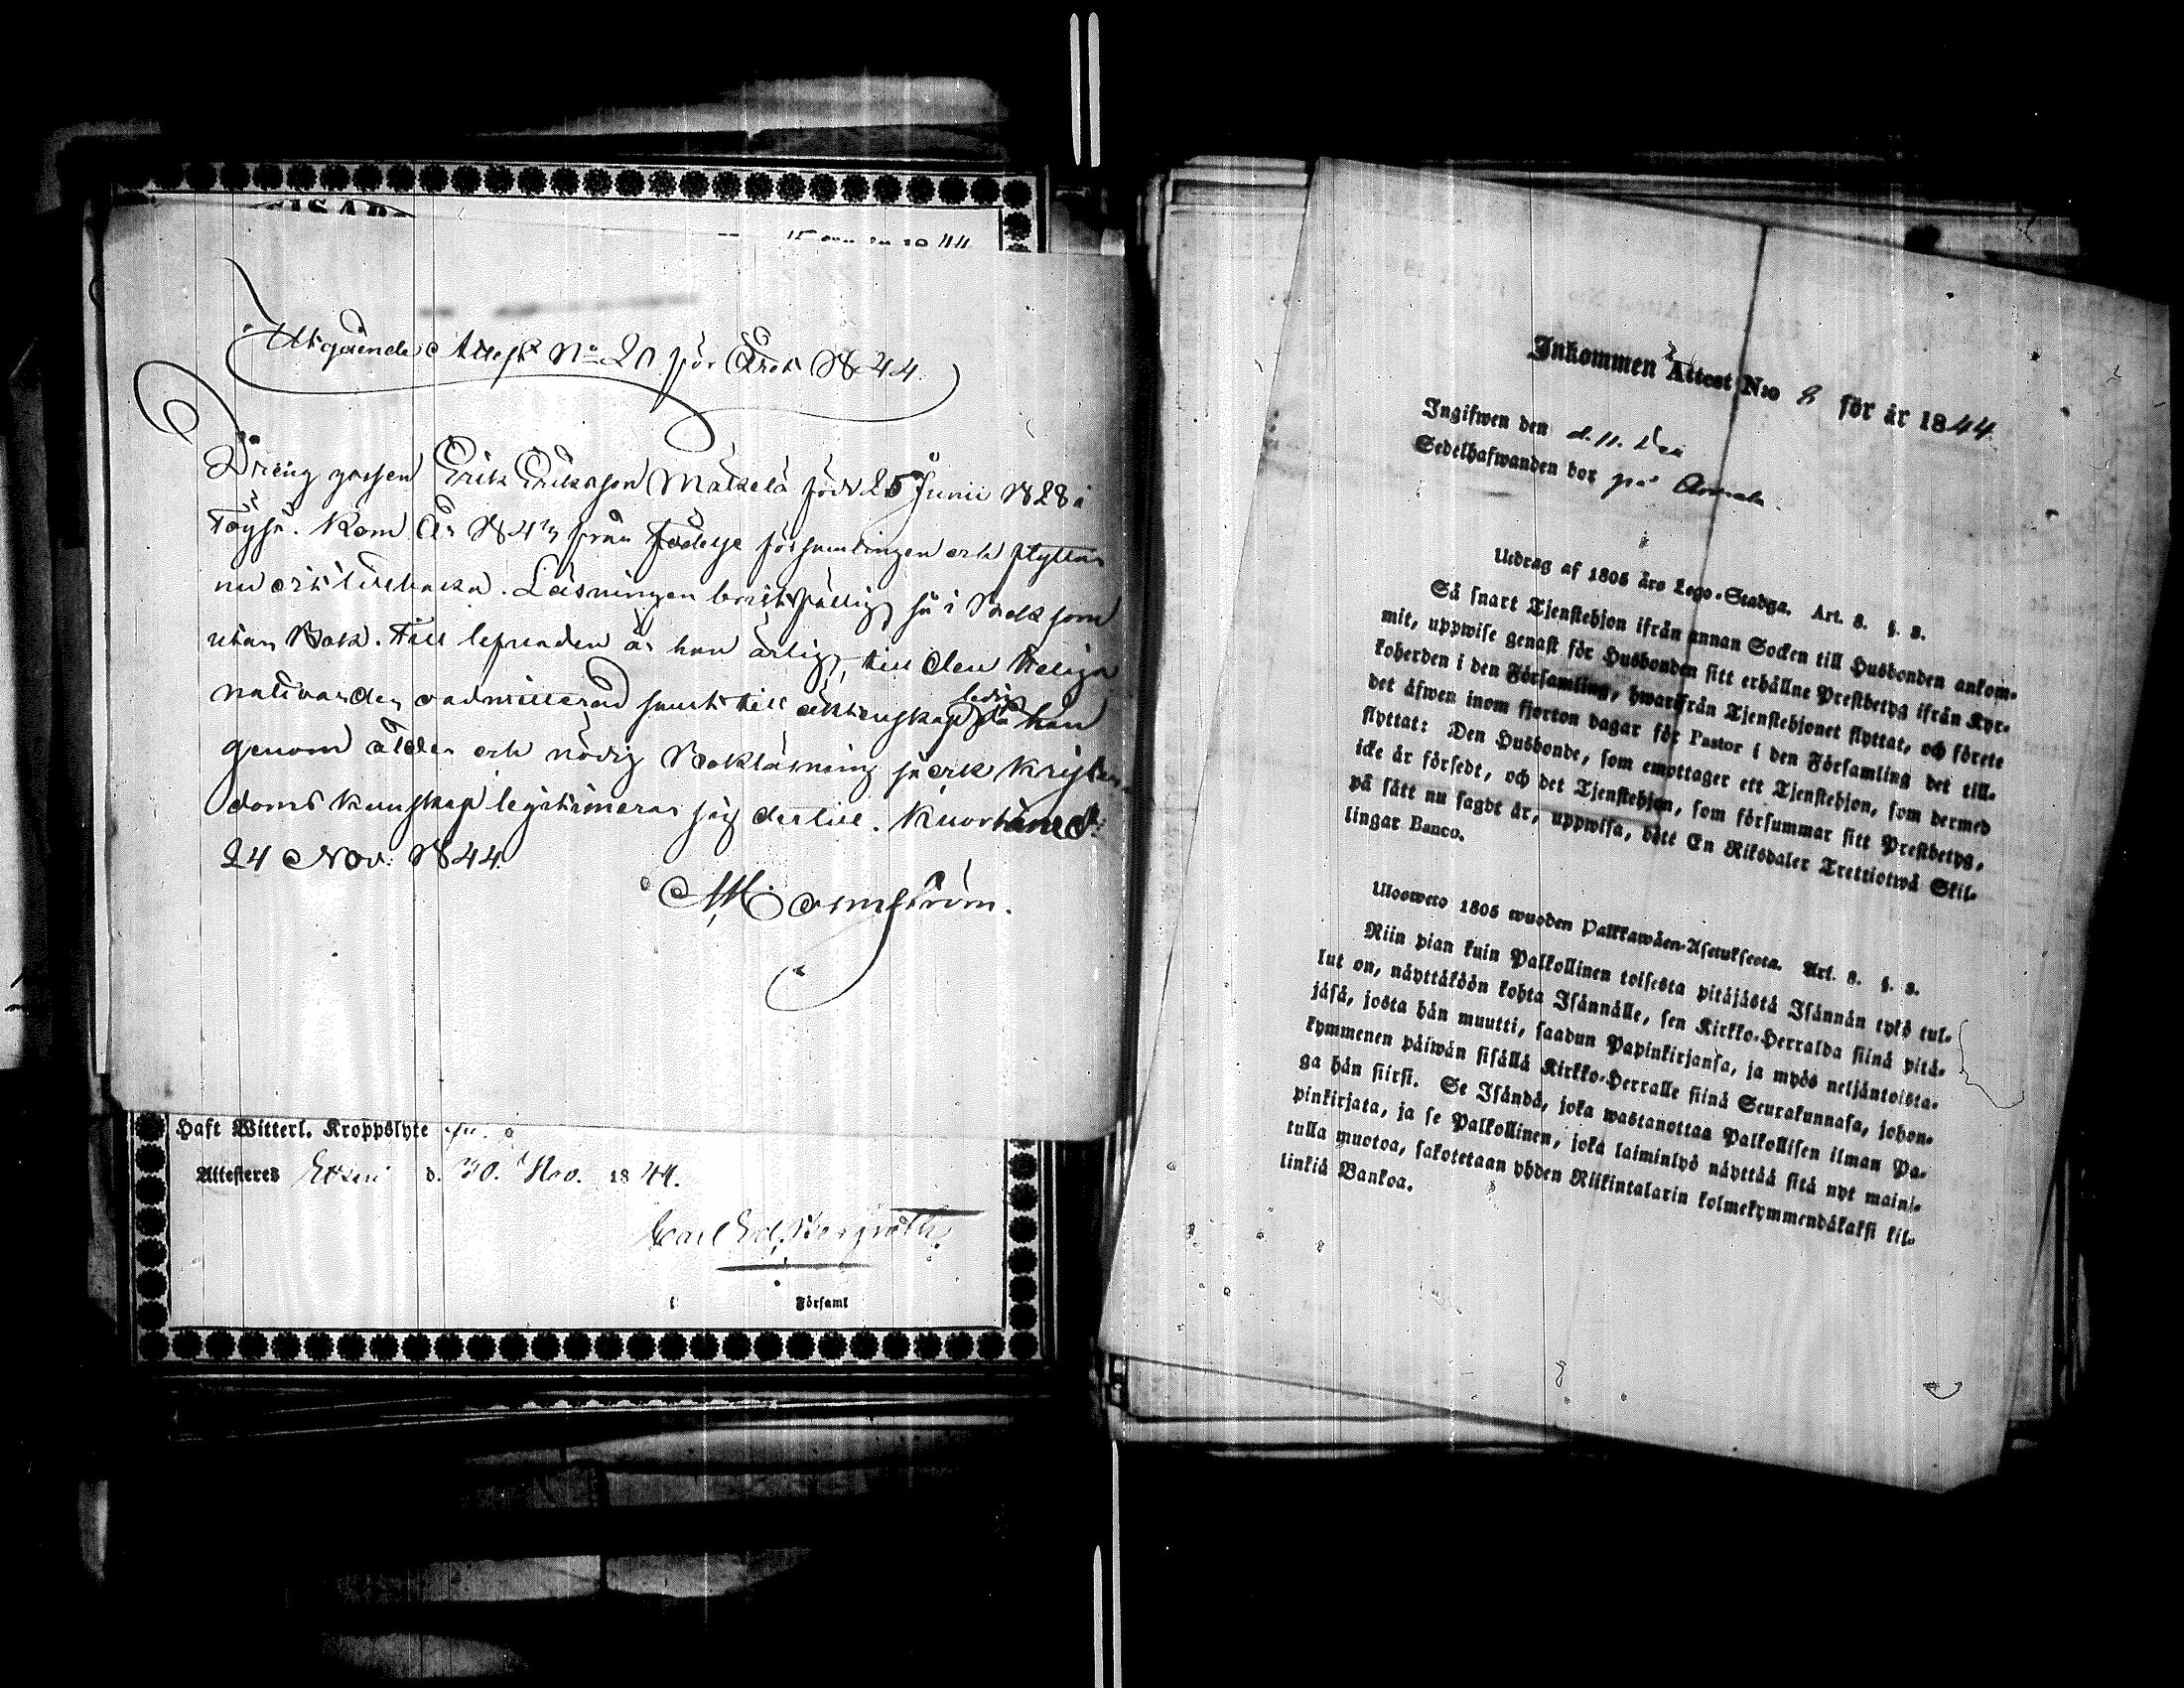 Utgående Attest No 20 för Året 1844.
Dränggossen Erik Eriksson Mäkelä född 25 Junii 1828 i
Töysä. Kom År 184 från Födelse församlingen och flyttar
nu till tillbaka. Läsningen bristfällig så i Bok som
utan Bok. Till lefnaden är han ärlig, till den heliga
nattvarden oadmitterad samt till äktenskap ledig då han
genom ålder och nödig Bokläsning sa och Kristen-
doms kunskap legitimerar sig dertill. Kuortane d.
24 Nov. 1844.
Haft Witterl. Kroppslyte
Attesteres Etseri d. 30. Nov. 1844.
Carl Ed. Bergroth
i Församl
Inkommen Attest N:o 8 för år 1844.
Ingifwen den d. 11. Dec
Sedelhafwanden bor på
Utdrag af 1805 års Lego-Stadga. Art. 8. §. 8.
Så snart Tjenstehjon ifrån annan Socken till Husbonden ankom-
mit, uppwise genast för Husbonden sitt erhållne Prestbetyg ifrån Kyr-
koherden i den Församling, hwarifrån Tjenstehjonet flyttat, och förete
det äfwen inom fjorton dagar för Pastor i den Församling det till-
flyttat: Den Husbonde, som emottager ett Tjenstehjon, som dermed
icke är försedt, och det Tjenstehjon, som försummar sitt Prestbetyg,
på sätt nu sagdt är, uppwisa, böte En Riksdaler Trettiotwå Skil-
lingar Banco.
Uloswero 1805 wuoden Palkkawäen-Asetuksesta. Art. 8. §. 8.
Niin pian kuin Palkollinen toisesta pitäjästä Isännän tykö tul-
lut on, näyttäköön kohta Isännälle, sen Kirkko-Herralda siinä pitä-
jäsä, josta hän muutti, saadun Papinkirjansa, ja myös neljäntoista-
kymmenen päiwän sisällä Kirkko-Herralle siinä Seurakunnasa, johon-
ga hän siirsi. Se Isändä, joka wastanottaa Palkollisen ilman Pa-
pinkirjata, ja se Palkollinen, joka laiminlyö näyttää sitä nyt maini-
tulla muotoa, sakotetaan yhden Riikintalarin kolmekymmendäkaksi kil-
linkiä Bankoa.